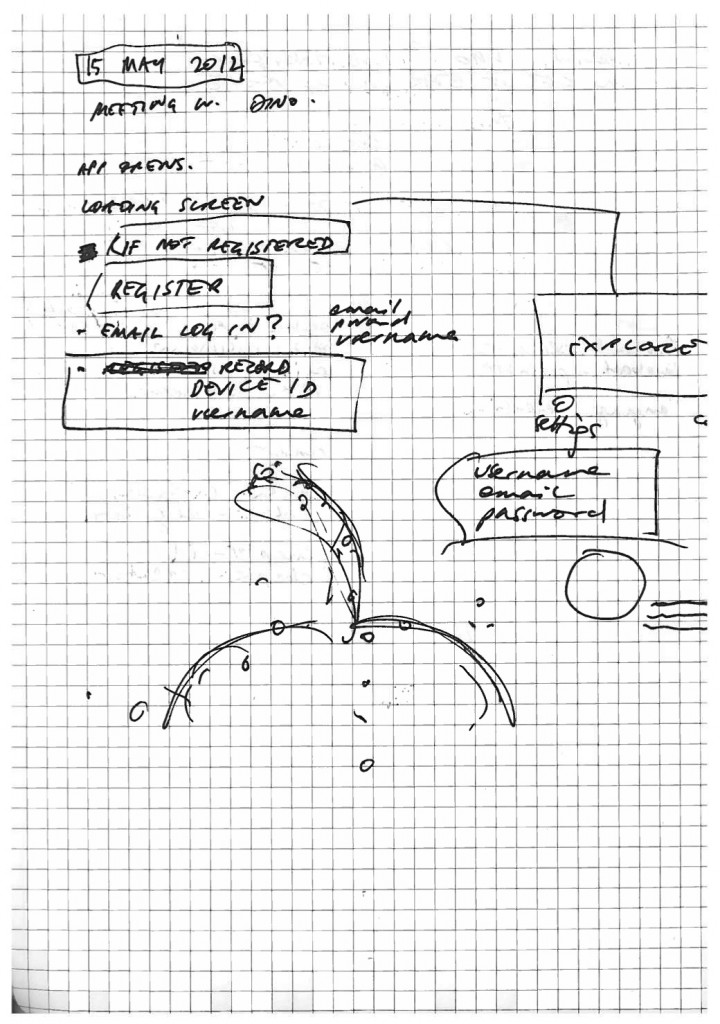 15 MAY 2012
MEETING W. DINO.
APP OPENS.
LOADING SCREEN
(IF NOT REGISTERED
REGISTER
- EMAIL LOG IN?
email
pword
username
- RECORD
DEVICE ID
username
EXPLORE
settings
username
email
password